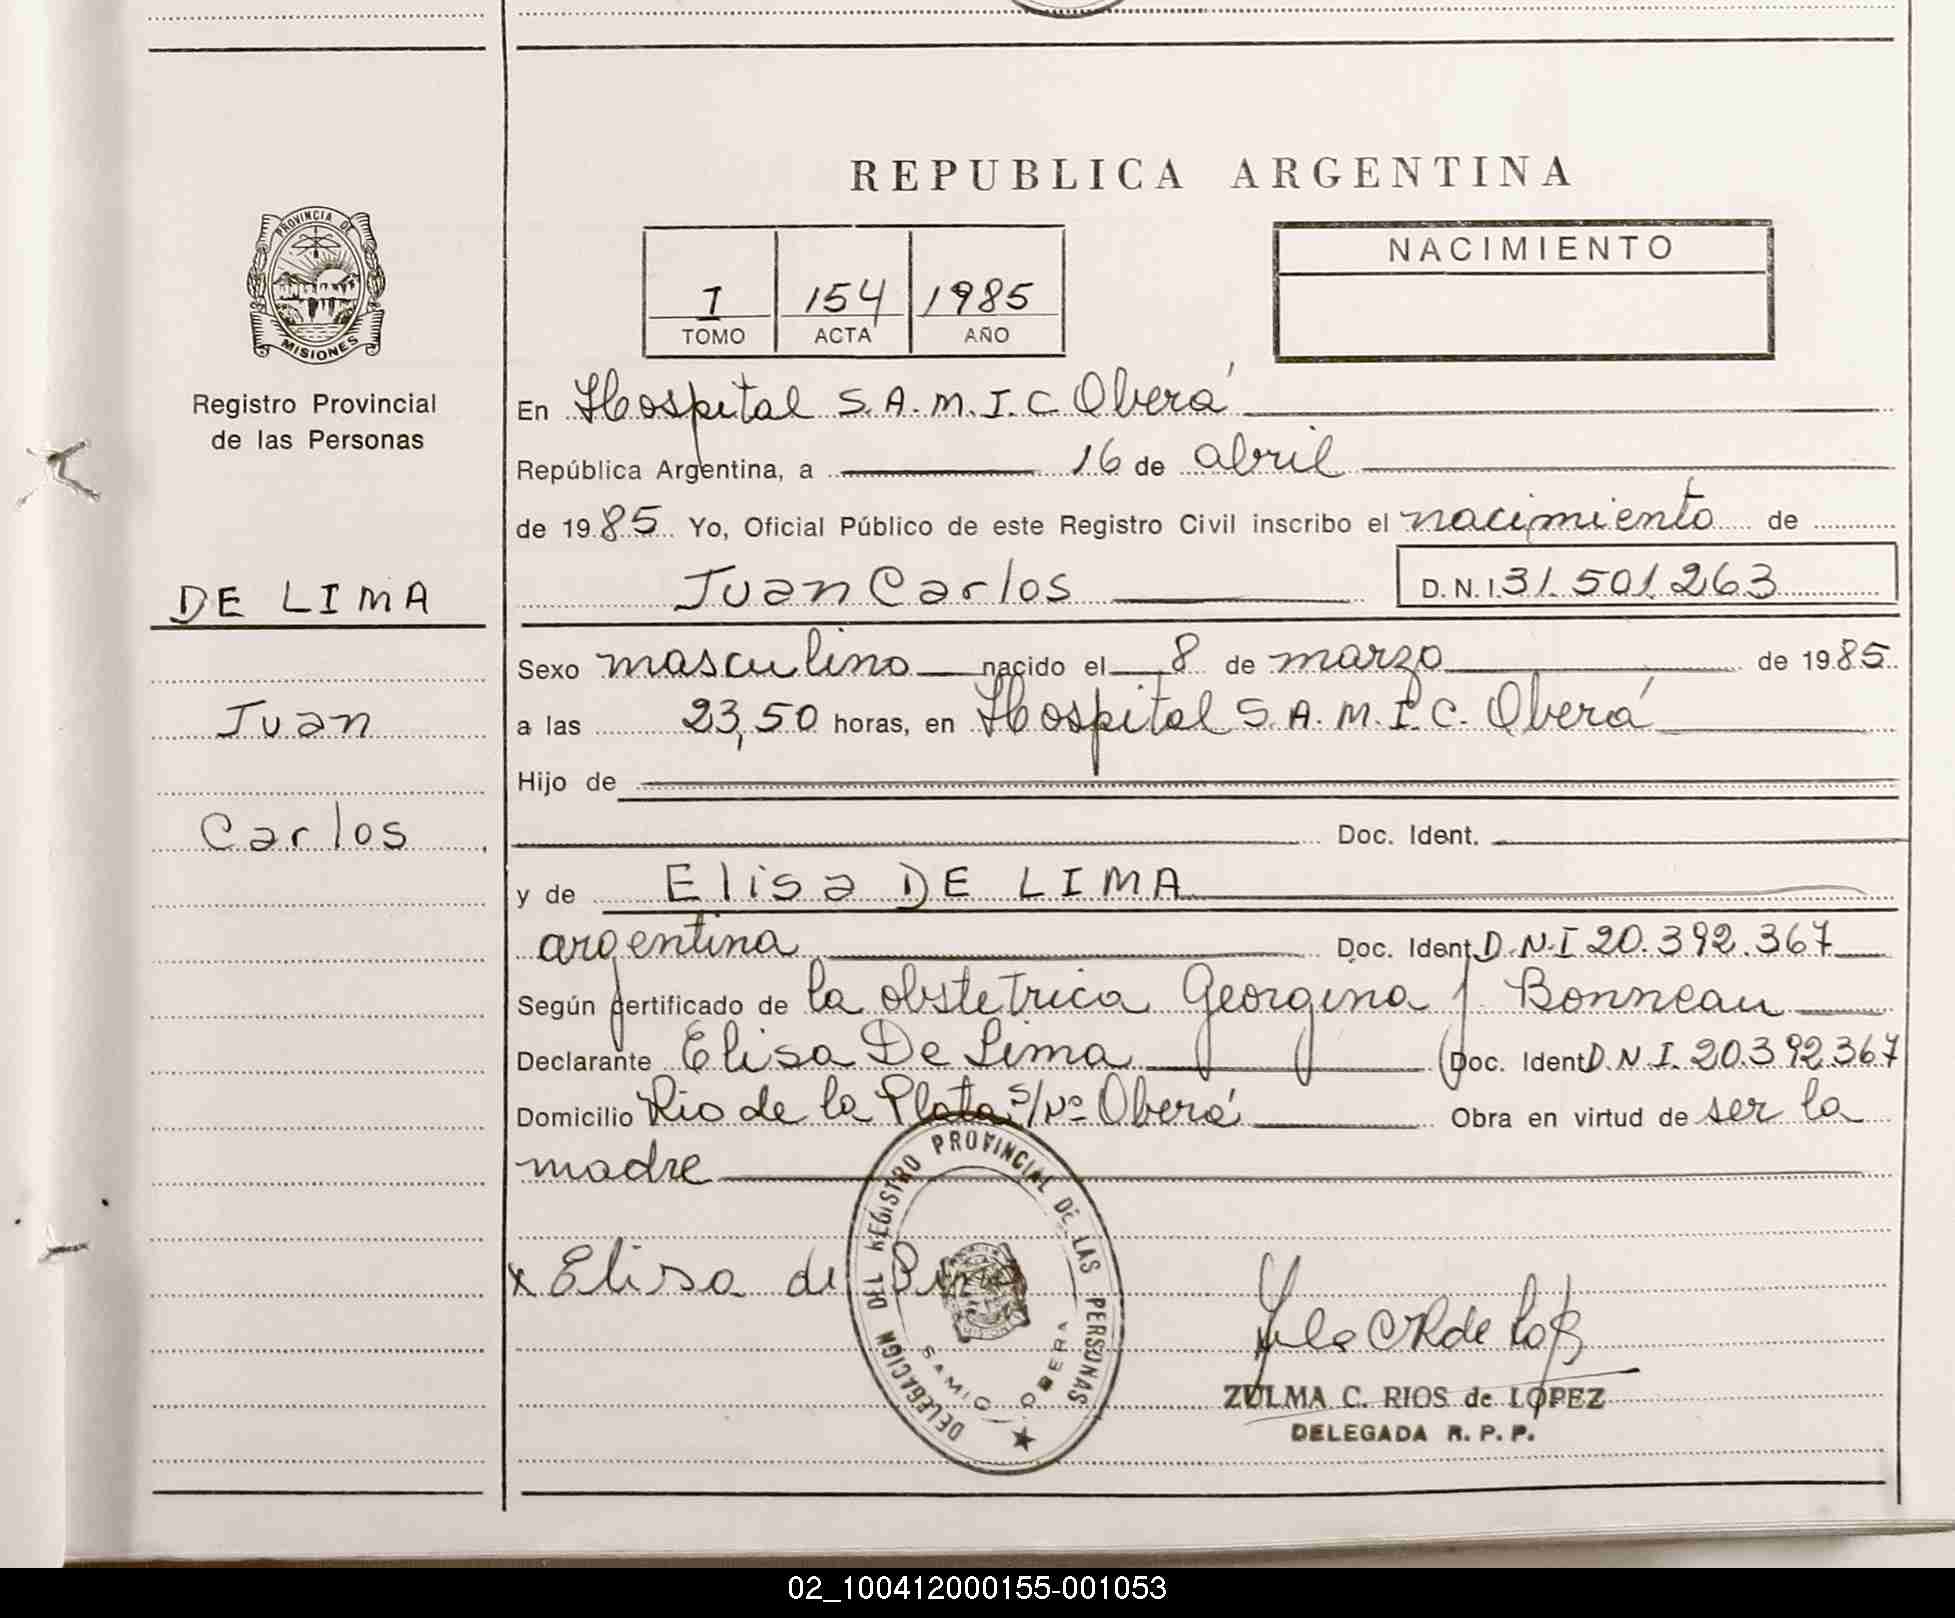 REPUBLICA ARGENTINA
PROVINCIA DE
MISIONES
Registro Provincial
de las Personas
DE LIMA
Juan
Carlos
I 154 1985
TOMO ACTA AÑO
NACIMIENTO
En Hospital S.A.M.I.C Oberá
República Argentina, a 16 de abril
de 1985 Yo, Oficial Público de este Registro Civil inscribo el nacimiento de
Juan Carlos D.N.I 31.501.263
Sexo masculino nacido el 8 de marzo de 1985
a las 23,50 horas, en Hospital S.A.M.I.C. Oberá
Hijo de
Doc. Ident.
y de Elisa DE LIMA
argentina Doc. Ident. D.N.I 20.392.367
Según certificado de la obstetrica Georgina J. Bonneau
Declarante Elisa De Lima Doc. Ident D.N.I. 20.392.367
Domicilio Rio de la Plata s/Nº Oberá Obra en virtud de ser la
madre
x Elisa de Lima
DELEGACION DEL REGISTRO PROVINCIAL DE LAS PERSONAS
SAMIC OBERA
ZULMA C. RIOS de LOPEZ
DELEGADA R. P. P.
02_100412000155-001053